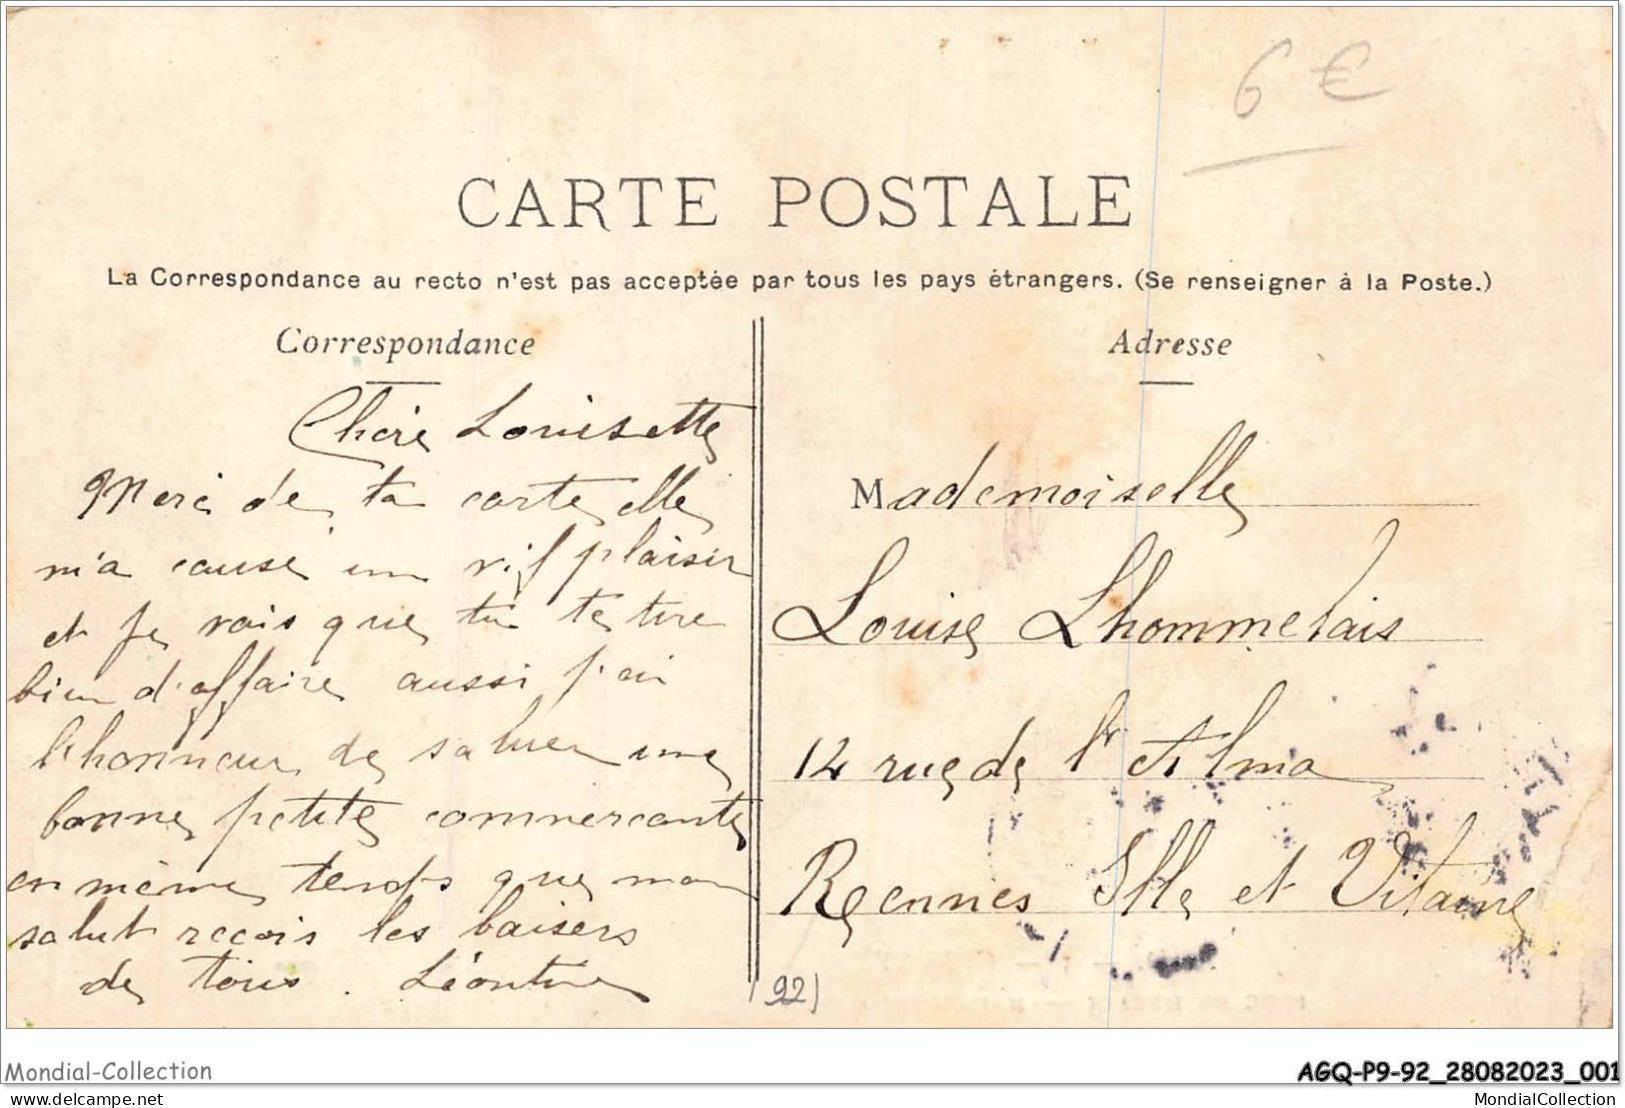 6 €
CARTE POSTALE
La Correspondance au recto n'est pas acceptée par tous les pays étrangers. (Se renseigner à la Poste.)
Correspondance
Chère Louisette
Merci de ta carte elle
m'a causé un vif plaisir
et je vois que tu te tire
bien d'affaire aussi j'ai
l'honneur de saluer une
bonne petite commercante
en même temps que mon
salut reçois les baisers
de tous. Léontine
Adresse
Mademoiselle
Louise Lhommelais
14 rue de l'Alma
Reennes Ille et Vilaine
92)
Mondial-Collection
AGQ-P9-92_28082023_001
delcampe.net
MondialCollection